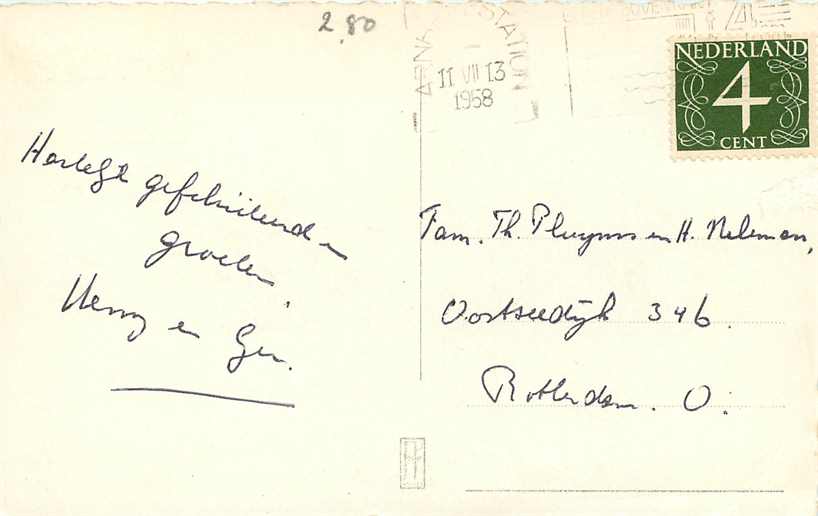 2,80
ARNHEM STATION
11 VII 13
1958
NEDERLAND
4
CENT
Hartelijk gefeliciteerd en
groeten,
Henny en Ger.
Fam. Th. Pluijms en H. Neleman,
Oostzeedijk 346.
Rotterdam. O.